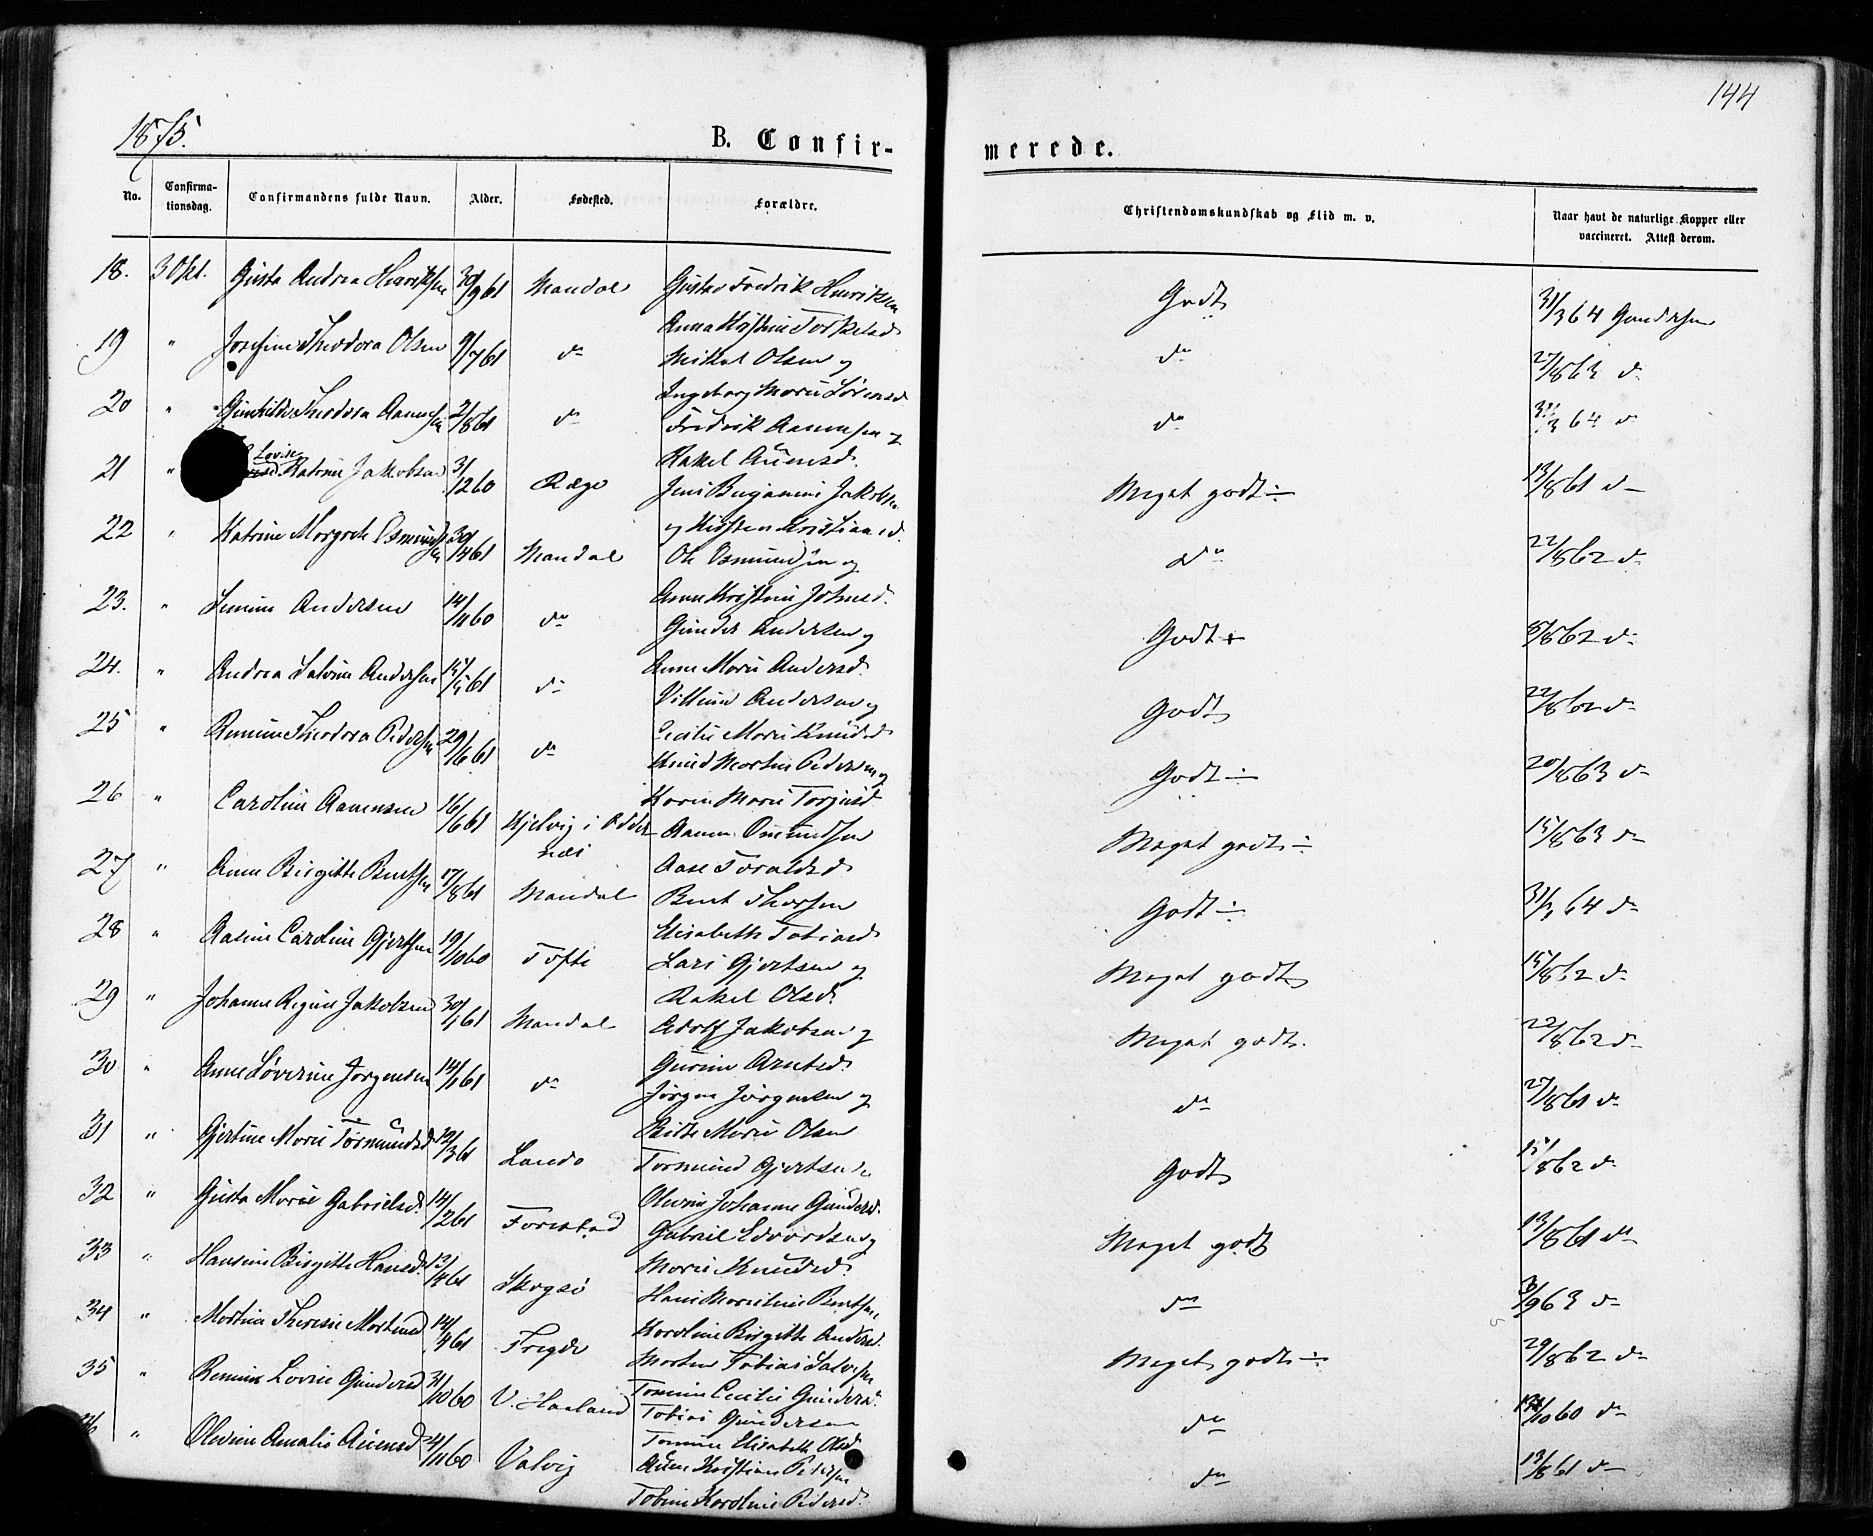 144
1875.
B. Confir-
merede.
No.
Confirma-
tionsdag.
Confirmandens fulde Navn.
Alder.
Fødested.
Forældre.
Christendomskundskab og Flid m. v.
Naar havt de naturlige Kopper eller
vaccineret. Attest derom.
18. 3 Okt. Gusta Andrea Henriksen 30/9 61 Mandal Gustav Fredrik Henriksen Godt 31/3 64 Gundersen
Anna Kristine Torkelsd
19 " Josefine Theodora Olsen 9/7 61 do Mikkel Olsen og do 27/8 63 do
Ingeborg Marie Sørensd
20 " Gunhilde Theodora Aanensen 2/8 61 do Fredrik Aanensen og do 31/3 64 do
Rakel Auensd.
Lovise
21 " Katrine Jakobsen 3/12 60 Ræge Jens Benjamin Jakobsen Meget godt ÷ 13/8 61 do
og Kirsten Kristiansd.
22 " Katrine Margrete Osmundsen 30/4 61 Mandal Ole Osmundsen og do 22/8 62 do
Anne Kristine Johnsd.
23. " Andersen 14/11 60 do Gunder Andersen og Godt + 8/8 62 do
Anne Marie Andersd.
24. " Andrea Andersen 15/5 61 do Villum Andersen og Godt 22/8 62 do
Cecilie Marie Knudsd
25 " Remine Theodora Pedersen 29/6 61 do Knud Martin Pedersen og Godt ÷ 20/8 63 do
Karen Marie Torjusd
26 " Caroline Aanensen 16/6 61 Kjelvig i Odder- Aanen Omundsen Meget godt ÷ 15/8 63 do
næs Aase Toraldsd
27 " Anne Birgitte Berntsen 17/8 61 Mandal Bernt Thorsen Godt ÷ 31/3 64 do
Elisabeth Tobiasd
28 " Aasine Caroline Gjertsen 19/10 60 Tofte Lars Gjertsen og Meget godt 15/8 62 do
Rakel Olsd.
29 " Johanne Regine Jakobsen 30/1 61 Mandal Adolf Jakobsen og Meget godt. 22/8 62 do
Gurine Arntsd
30 " Anne Løverine Jørgensen 14/1 61 do Jørgen Jørgensen og do 27/8 61 do
Birthe Marie Olsen
31 " Gjertine Marie Tormundsd 12/3 61 Lando Tormund Gjertsen Godt 15/8 62 do
Olevine Johanne Gundersd.
32 " Gusta Marie Gabrielsd. 14/2 61 Forestad Gabriel Edvardsen og Meget godt 13/8 61 do
Marie Knudsd.
33 " Hansine Birgitte Hansd. 13/4 61 Skogsø Hans Berntsen do 3/9 63 do
Karoline Birgitte Andersd.
34 " Martine Theresie Martinsd 14/4 61 Fregde Morten Tobias Salvesen Meget godt ÷ 29/8 62 do
Tomine Cecilie Gundersd.
35 " Remine Lovise Gundersd 31/10 60 V. Haaland Tobias Gundersen do /10 60 do
Tomine Elisabeth Olsd
36 " Olevine Amalie Auensd 24/11 60 Valvig Auen Kristian Pedersen do 13/8 61 do
Tobine Karoline Pedersd.